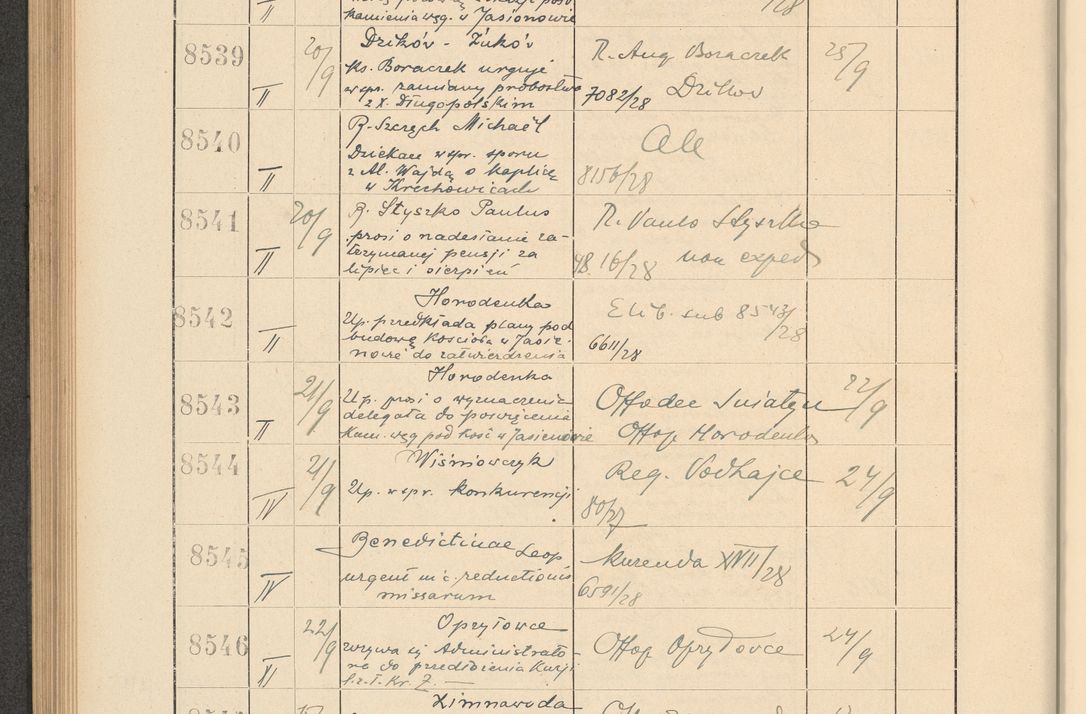 kamienia węg. w Jasionowie
/28
8539
II
20/9
Dzików - Żuków
ks. Boraczek urguje
w spr. zamiany probostwa
z X. Długopolskim
R. Aug Boraczek
7082/28 Dzików
25/9
8540
II
R. Szczęch Michaël
Dziekan w spr. sporu
z Al. Wajdą o kaplicę
w Krechowicach
Ale
8156/28
8541
II
20/9
R. Styszko Paulus
prosi o nadesłanie za-
trzymanej pensji za
lipiec i sierpień
R. Paulo Styszko
48.16/28 non exped
8542
II
Horodenka
Up. przedkłada plany pod
budowę kościoła w Jasie-
nowie do zatwierdzenia
sub 8543/28
6611/28
8543
II
21/9
Horodenka
Up. prosi o wyznaczenie
delegata do poświęcenia
Kam. węg pod kość w Jasienowie
Offodec Sniatyn
Offop Horodenka
22/9
8544
IV
21/9
Wiśniowczyk
Up. w spr. konkurencji
Reg. Podhajce
80/27
24/9
8545
IV
Benedictinae Leop
urgent in c. reductionis
missarum
kurenda XVII/28
6591/28
8546
II
22/9
Opryłowce
wzywa się Administrato-
ra do przedłożenia Kurji
Offop Opryłowce
24/9
Zimnawoda